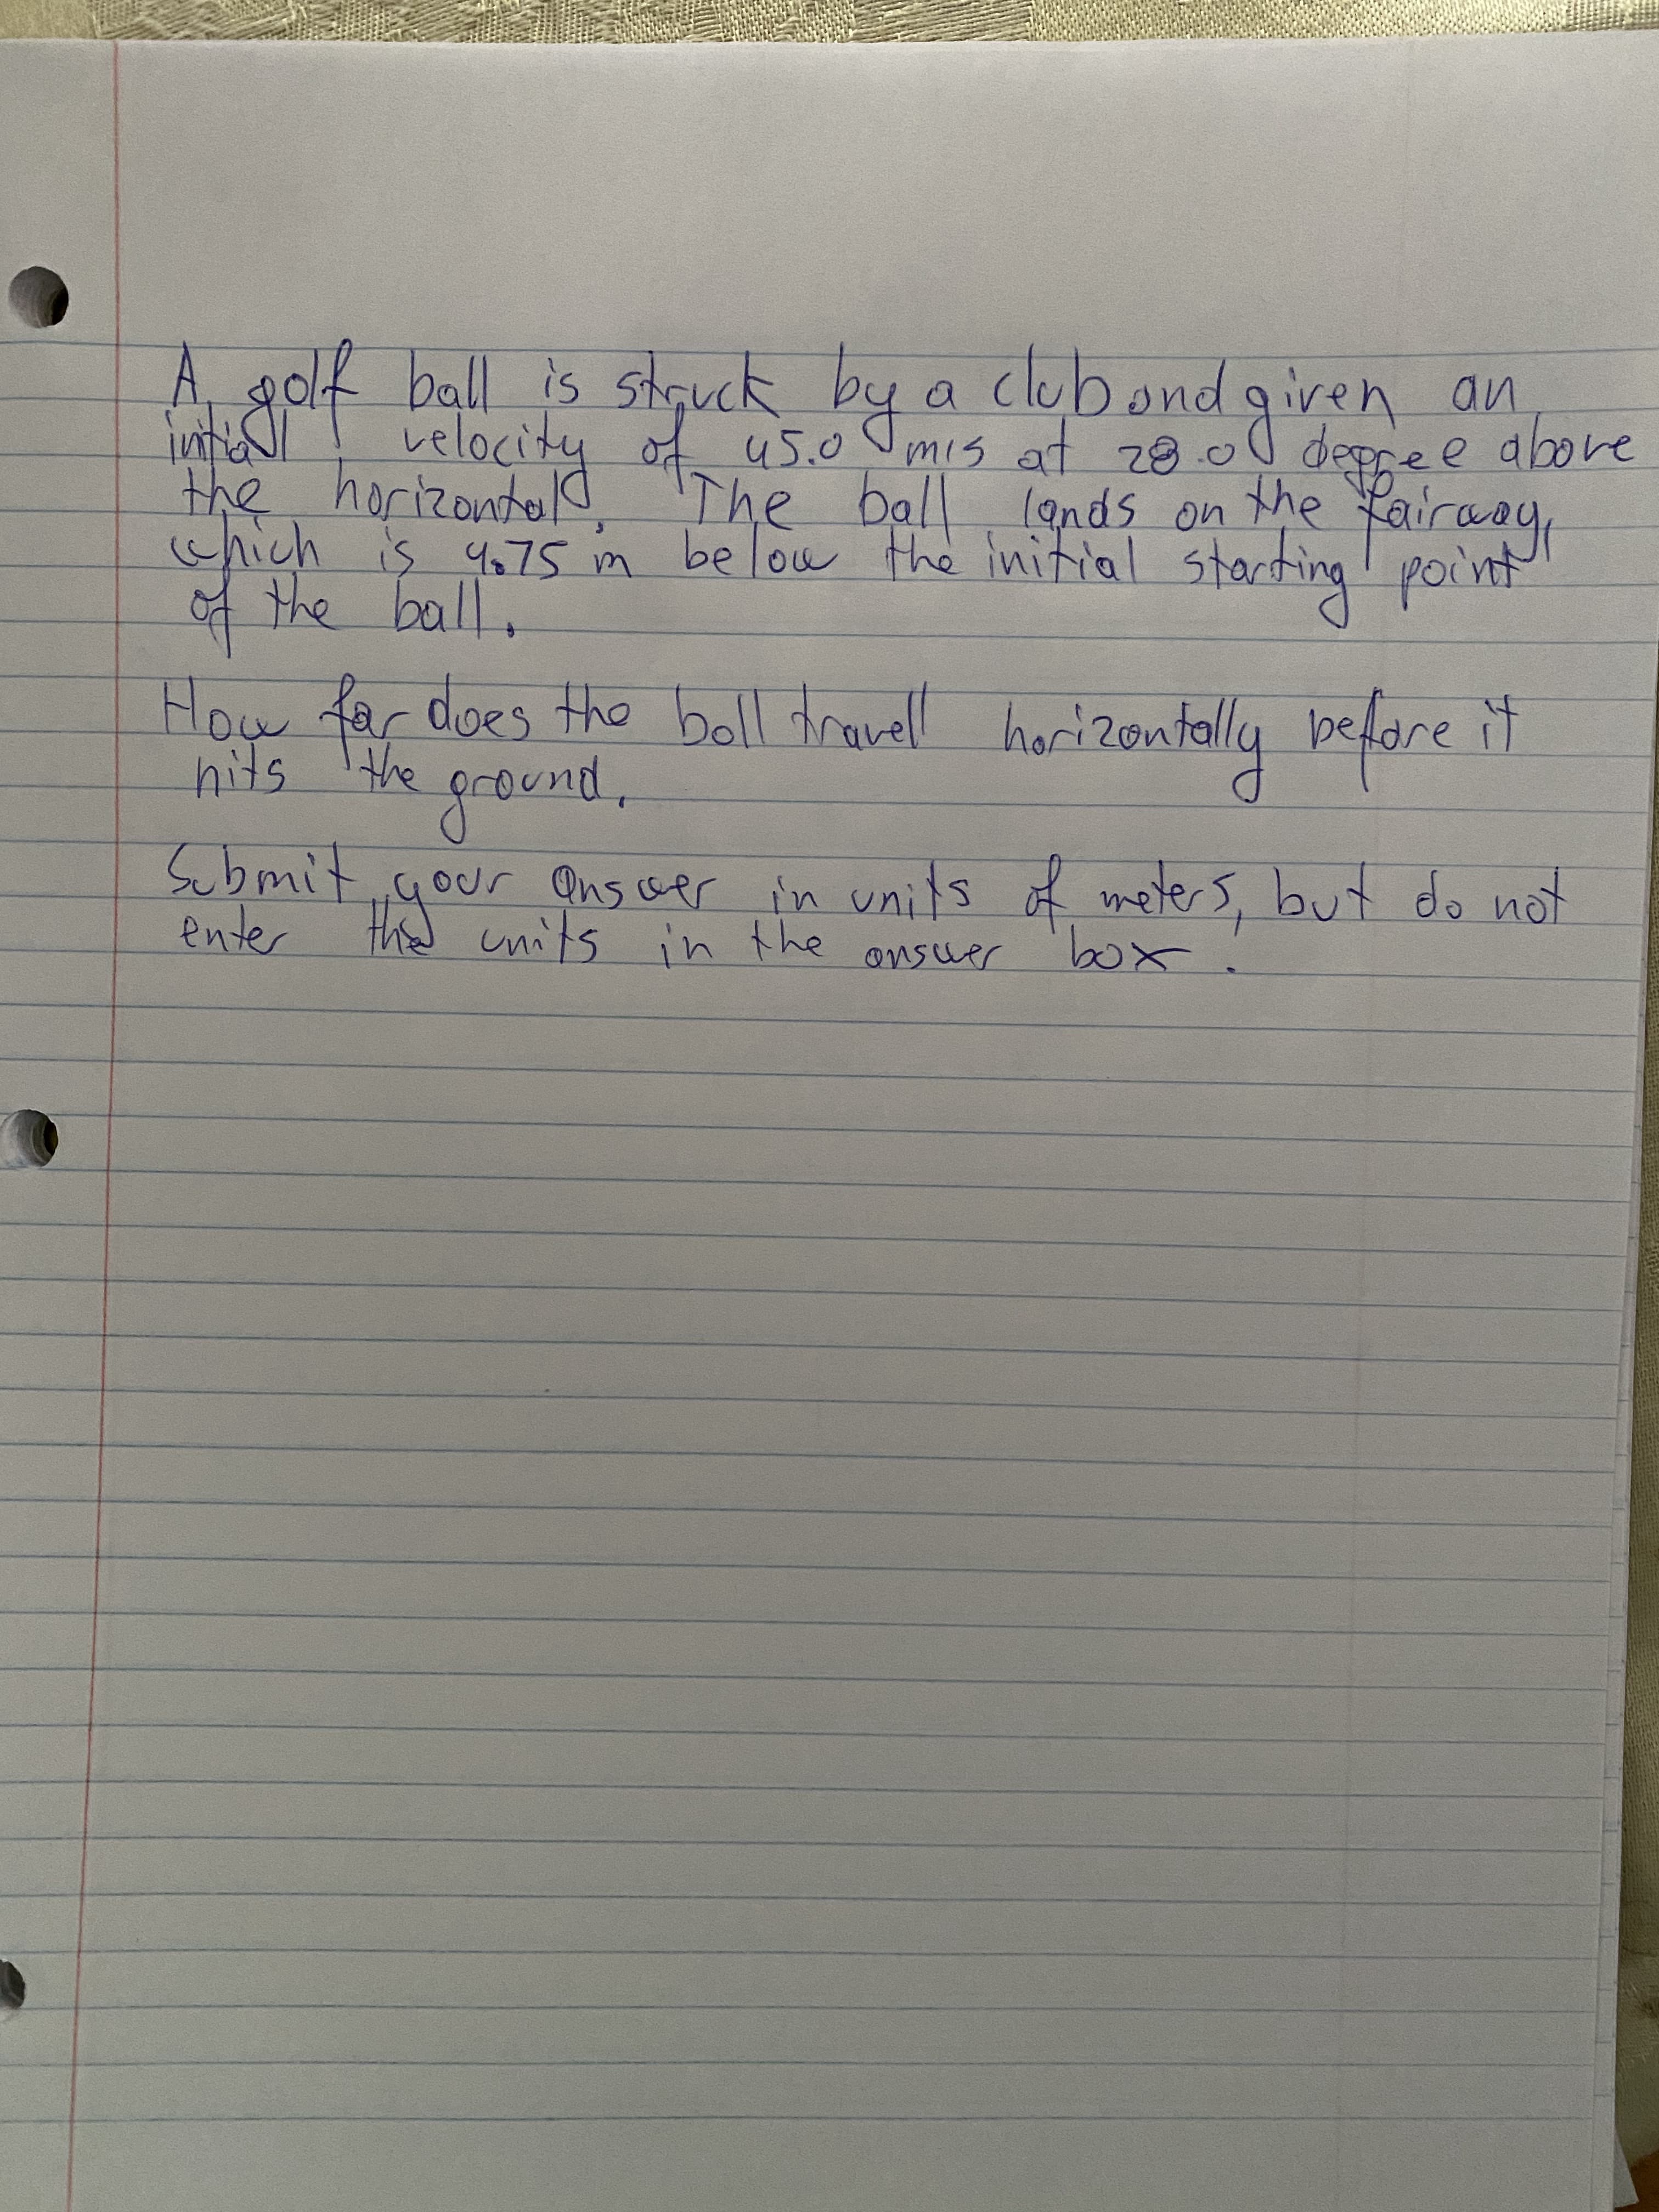 A golf ball is struck by a club and given an
initial velocity of 45.0 m/s at 28.0 degree above
the horizontal. The ball lands on the fairway,
which is 4.75 m below the initial starting point
of the ball.
How far does the ball travell horizontally before it
hits the ground.
Submit your answer in units of meters, but do not
enter the units in the answer box.